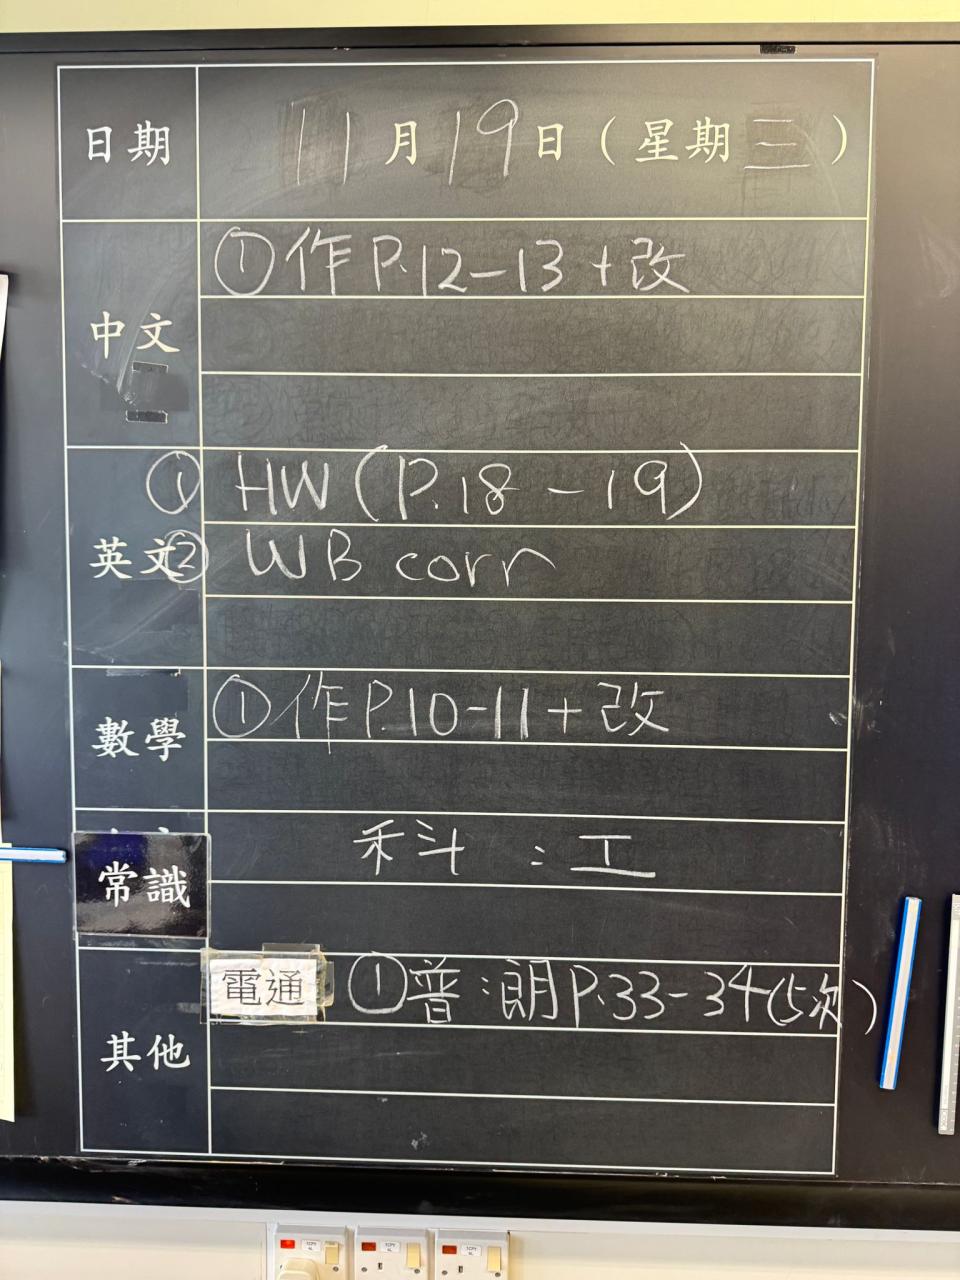 日期 11月19日(星期三)
中文 ①作P.12-13+改
英文 ① HW (P.18 - 19)
② WB corr
數學 ①作P.10-11+改
常識 科:工
其他 電通 ①普:朗P.33-34(5次)